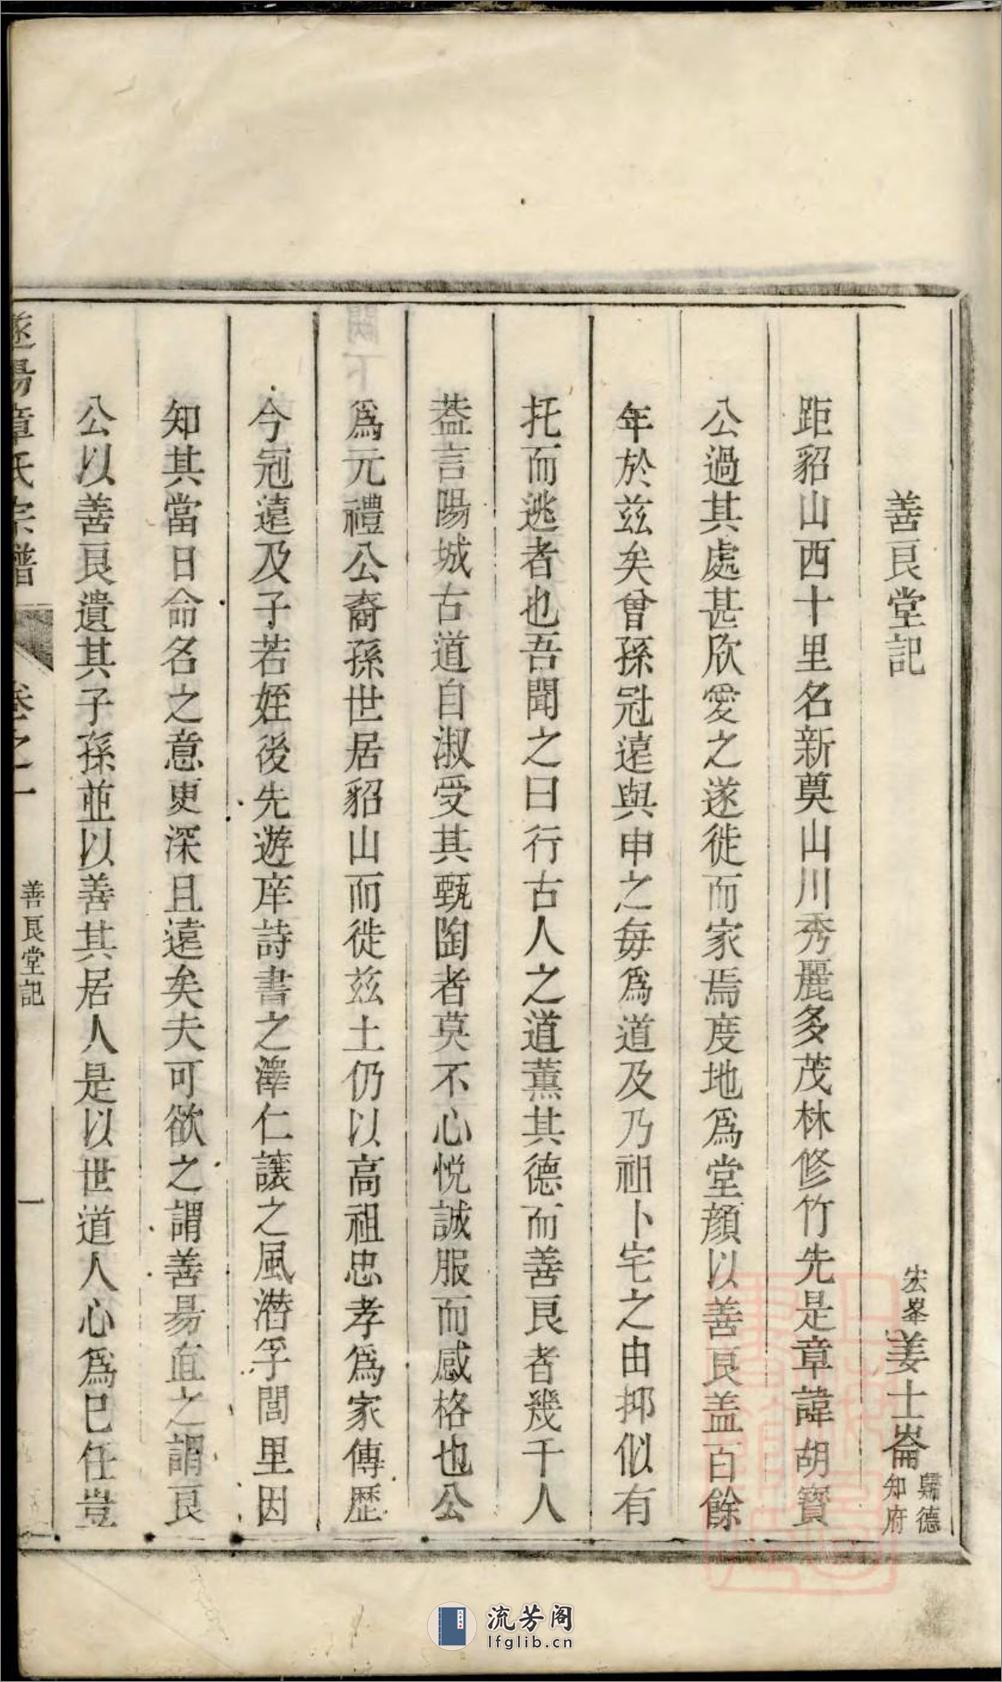 善良堂記
宏峯姜士崙歸德知府
距貂山西十里名新奠山川秀麗多茂林修竹先是章諱胡寳
公過其處甚欣愛之遂徙而家焉度地為堂顏以善良盖百餘
年於兹矣曾孫冠遠與申之每為道及乃祖卜宅之由抑似有
托而逃者也吾聞之曰行古人之道薰其德而善良者幾千人
葢言陽城古道自淑受其甄陶者莫不心悅誠服而感格也公
為元禮公裔孫世居貂山而徙兹土仍以高祖忠孝為家傳歷
今冠遠及子若姪後先遊庠詩書之澤仁讓之風潜孚閭里因
知其當日命名之意更深且遠矣夫可欲之謂善易直之謂良
公以善良遺其子孫並以善其居人是以世道人心為已任豈
遂陽章氏宗譜
卷之一
善良堂記
一
闕下
流芳阁
lfglib.cn